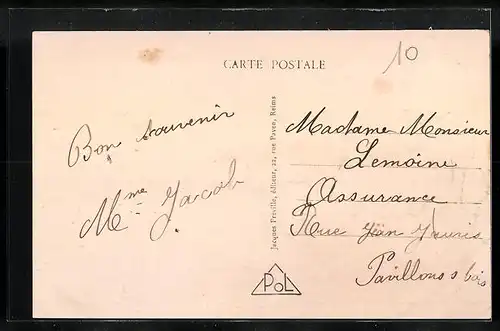 CARTE POSTALE
10
Bon souvenir
Mme Jacob
Jacques Fréville, éditeur, 22, rue Pavée, Reims
Madame Monsieur
Lemoine
Assurance
Rue Jean Jauris
Pavillons s bois
POL